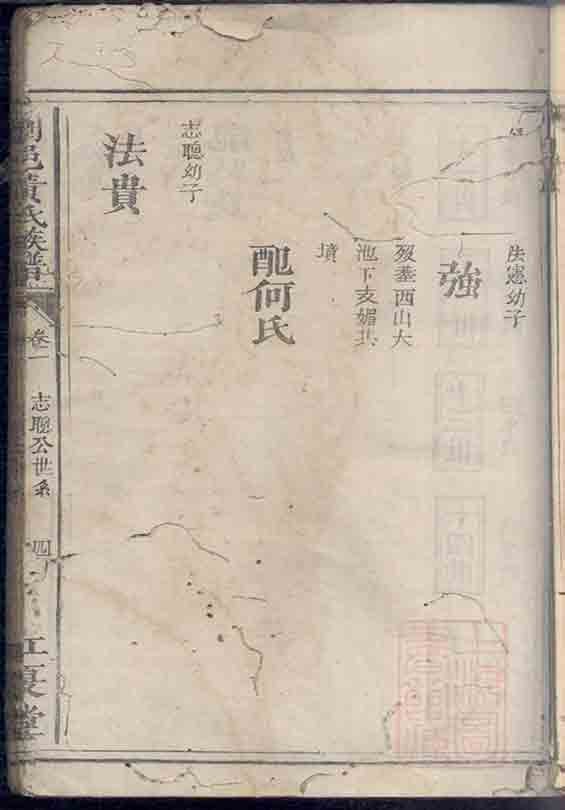 法憲幼子
強
歿塟西山大
池下支媚共
墳
配何氏
志聰幼子
法貴
瀏邑黄氏族譜
卷一
志聰公世系
四
江夏堂